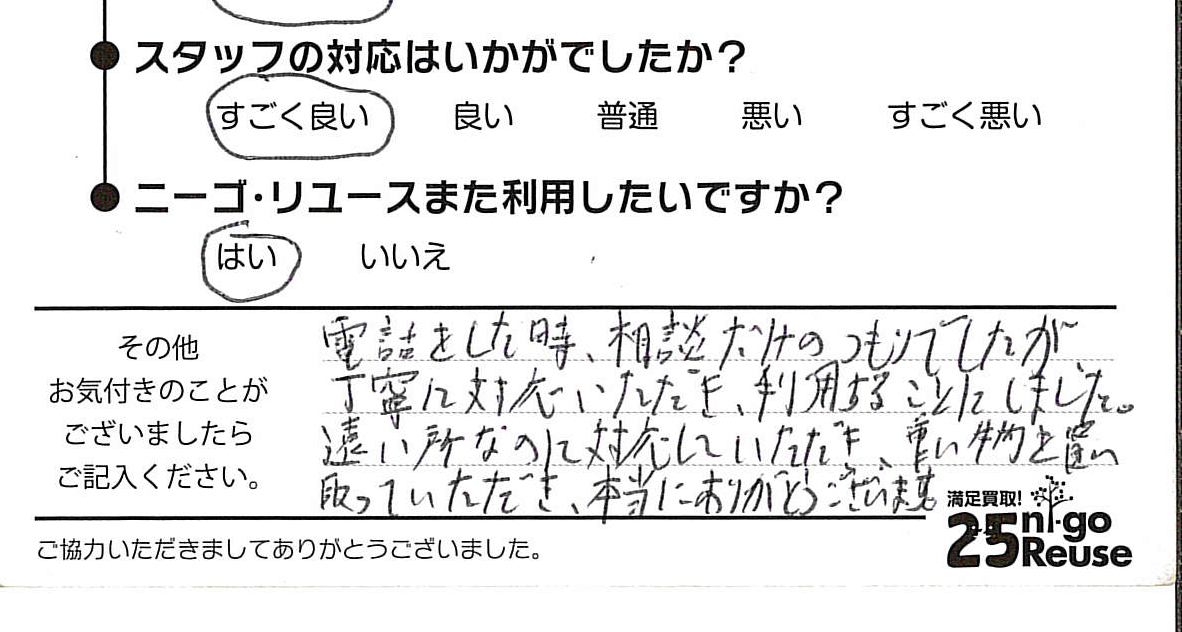 スタッフの対応はいかがでしたか？
すごく良い 良い 普通 悪い すごく悪い
ニーゴ・リユースまた利用したいですか？
はい いいえ
その他
お気付きのことが
ございましたら
ご記入ください。
電話をした時、相談だけのつもりでしたが、
丁寧に対応いただき、利用することにしました。
遠い所なのに対応していただき、重い物を買い
取っていただき、本当にありがとうございます
満足買取!
25 ni-go
Reuse
ご協力いただきましてありがとうございました。